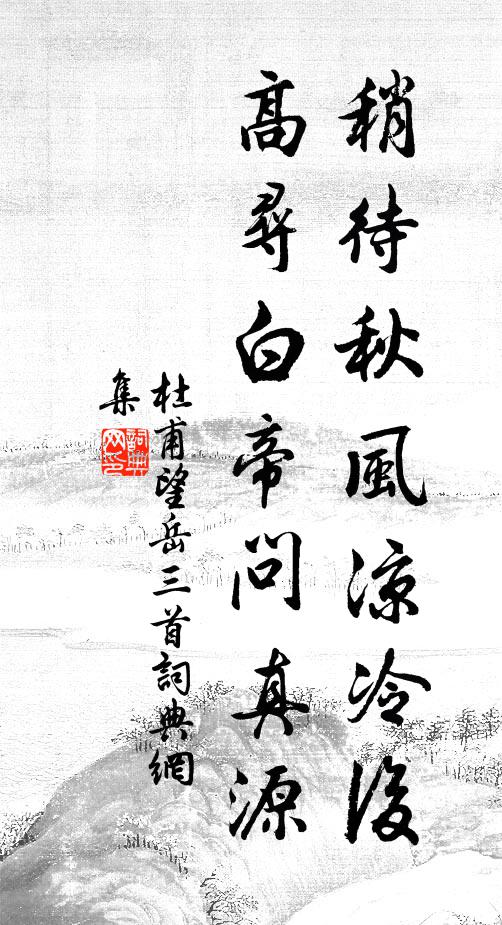 稍待秋風凉冷後
高尋白帝問真源
杜甫望岳三首詞典網
集
詞典网印